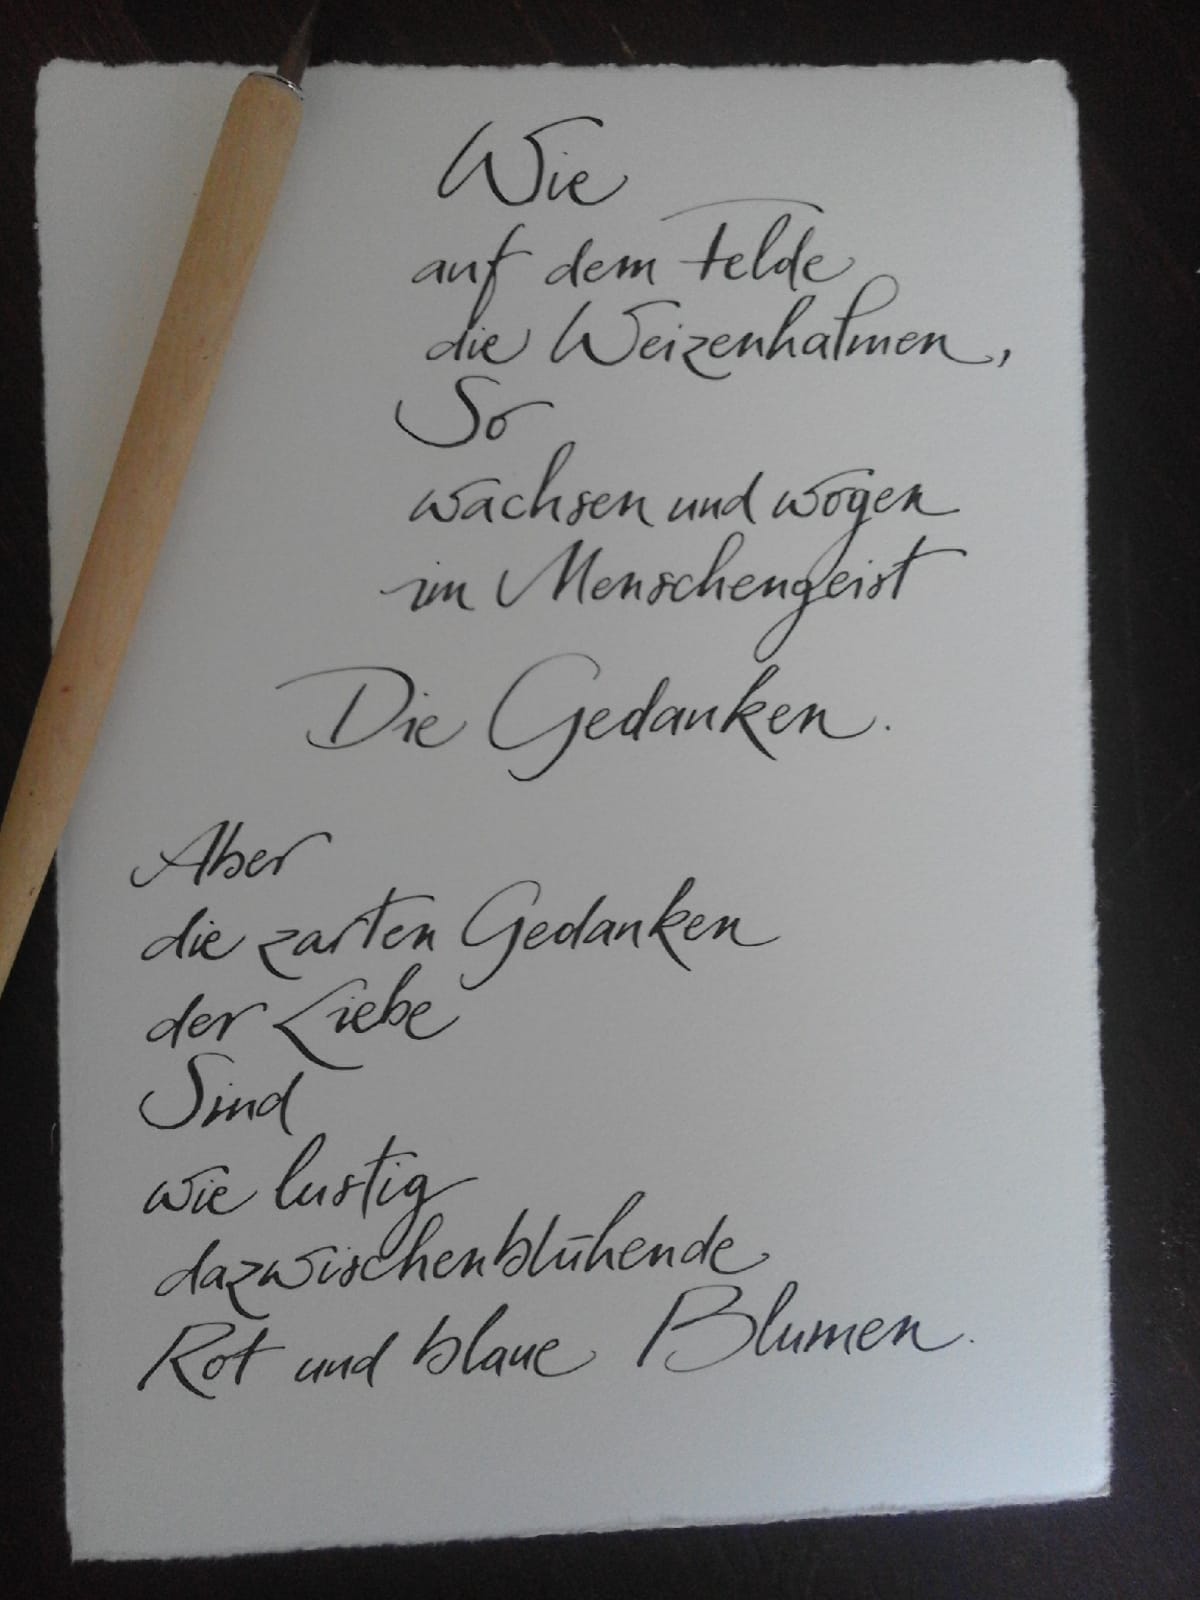 Wie
auf dem Felde
die Weizenhalmen,
So
wachsen und wogen
im Menschengeist
Die Gedanken.
Aber
die zarten Gedanken
der Liebe
Sind
wie lustig
dazwischenblühende
Rot und blaue Blumen.